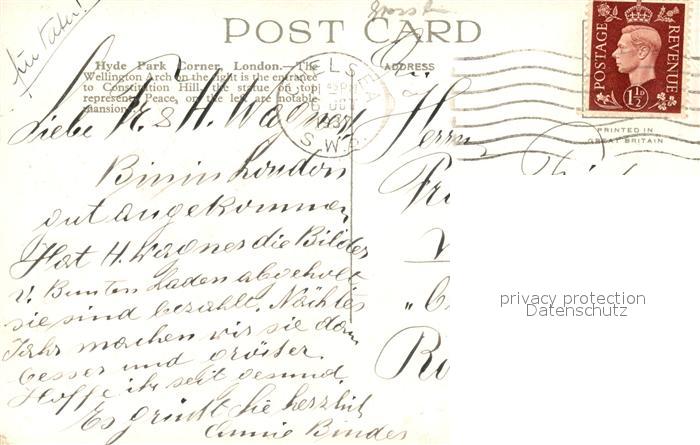 für Vater!
POST CARD
Hyde Park Corner, London.—The
Wellington Arch on the right is the entrance
to Constitution Hill, the statue on top
represents Peace, on the left are notable
mansions.
ADDRESS
S.W.
POSTAGE REVENUE
1½D
PRINTED IN
GREAT BRITAIN
Liebe H. Wagner
Bin in London
gut angekommen
Hat H. Wagner die Bilder
v. Bunten Laden abgeholt
sie sind bezahlt. Nächstes
Jahr machen wir sie dann
besser und größer.
Hoffe ihr seit gesund.
Es grüßt Sie herzlich
Annie Binder
Herrn
Fr
privacy protection
Datenschutz